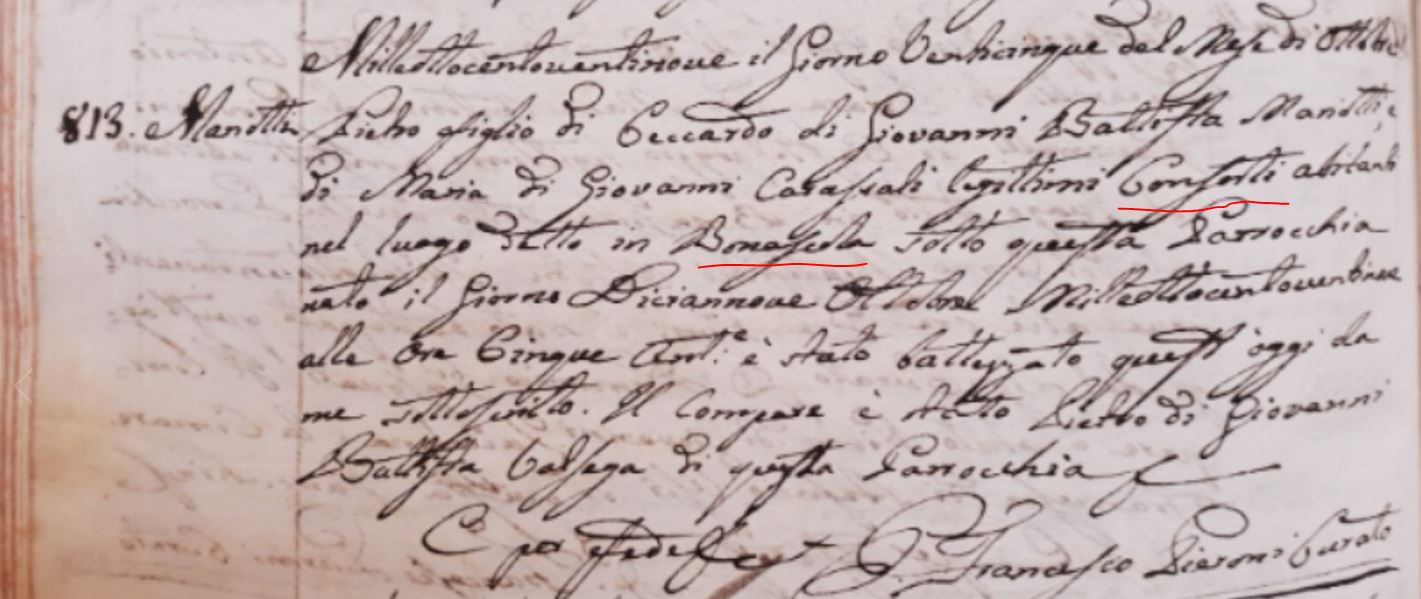 Milleottocentoventinove il Giorno Venticinque del Mese di Ottobre
813. Mariotti Pietro figlio di Ceccardo di Giovanni Battista Mariotti, e
di Maria di Giovanni legittimi Consorti abitanti
nel luogo detto in Bonascola sotto questa Parrocchia
nato il Giorno Diciannove Ottobre Milleottocentoventinove
alle Ore Cinque Ant:e è stato battezzato quest'oggi da
me sottoscritto. Il Compare è stato Pietro di Giovanni
Battista di questa Parrocchia
E per fede P. Francesco Pieroni Curato